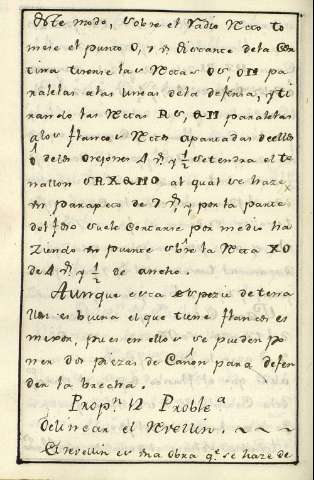 Este modo, sobre el radio recto to
mese el punto O, y en distante de la Cor
tina tirense las rectas OS, OM pa
ralelas a las lineas de la defensa, y ti
rando las rectas RS, QM paralelas
a los flancos rectos apartadas de ellos
ô delos orejones 4 rs y ½ se tendra el te
nallon SRXQMO al qual se haze
su parapeto de 3 rs y por la parte
del foso suele cortarse por medio ha
ziendo un puente sobre la recta XO
de 4 rs y ½ de ancho.
Aunque esta espezie de tena
llon es buena el que tiene flancos es
mejor, pues en ellos se pueden po
ner dos piezas de Cañon para defen
der la brecha.
Propn 12 Problea
Delinear el revellin. ~ ~ ~
El revellin es una obra qe se haze de